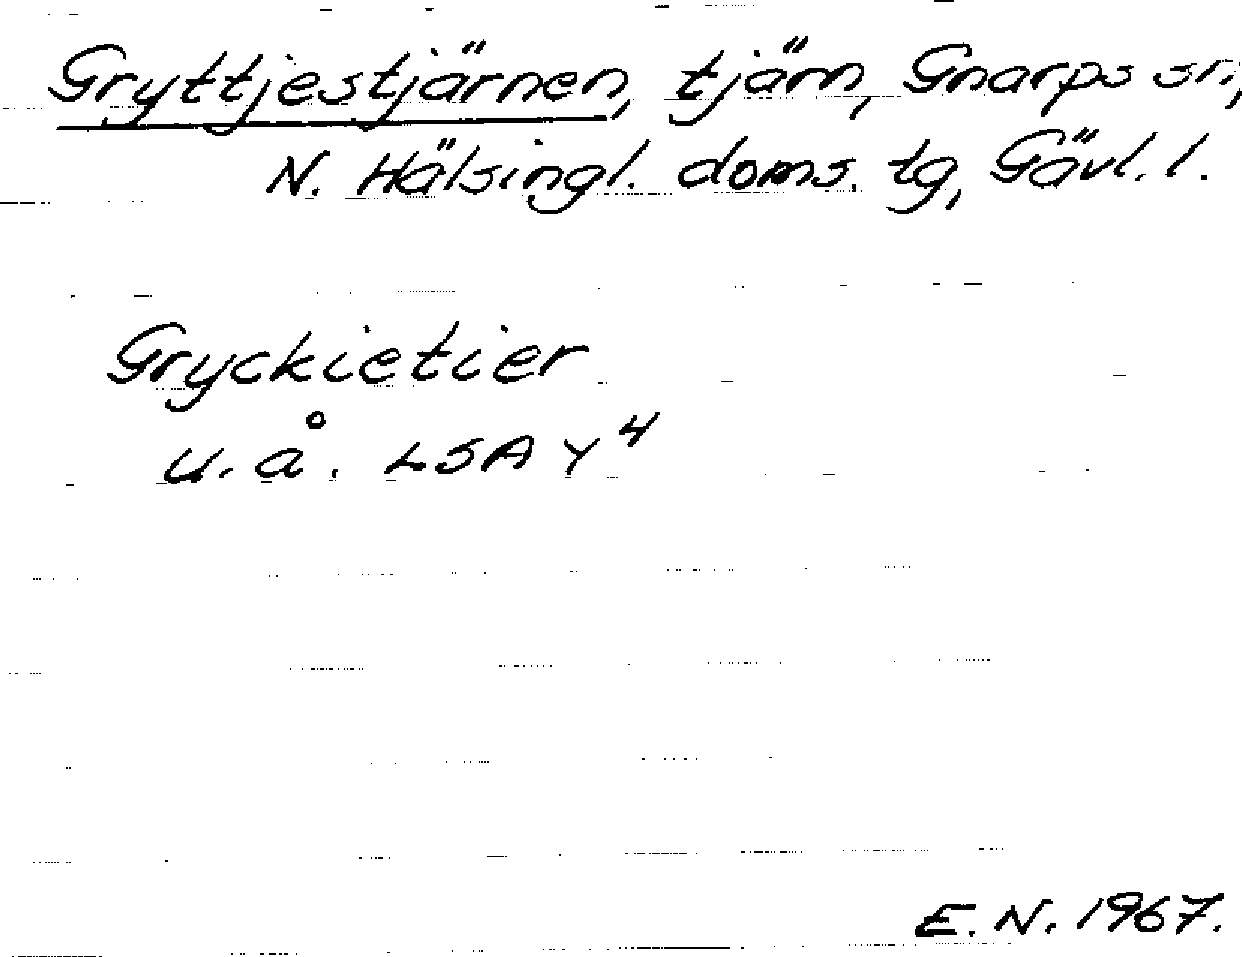 Gryttjestjärnen, tjärn, Gnarps sn,
N. Hälsingl. doms. tg, Gävl. l.
Gryckietier
u. å. LSA Y⁴
E. N. 1967.